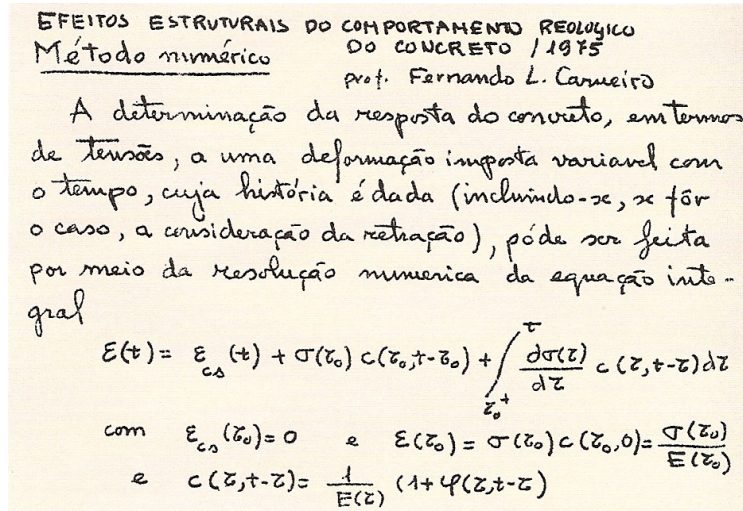 EFEITOS ESTRUTURAIS DO COMPORTAMENTO REOLOGICO
DO CONCRETO / 1975
Método numérico
prof. Fernando L. Carneiro
A determinação da resposta do concreto, em termos
de tensões, a uma deformação imposta variavel com
o tempo, cuja história é dada (incluindo-se, se fôr
o caso, a consideração da retração), póde ser feita
por meio da resolução numerica da equação inte-
gral
ε(t) = ε_cs(t) + σ(τ₀) c(τ₀,t-τ₀) + ∫_τ₀⁺^τ dσ(τ)/dτ c(τ,t-τ)dτ
com ε_cs(τ₀)=0 e ε(τ₀) = σ(τ₀) c(τ₀,0) = σ(τ₀)/E(τ₀)
e c(τ,t-τ) = 1/E(τ) (1+φ(τ,t-τ)